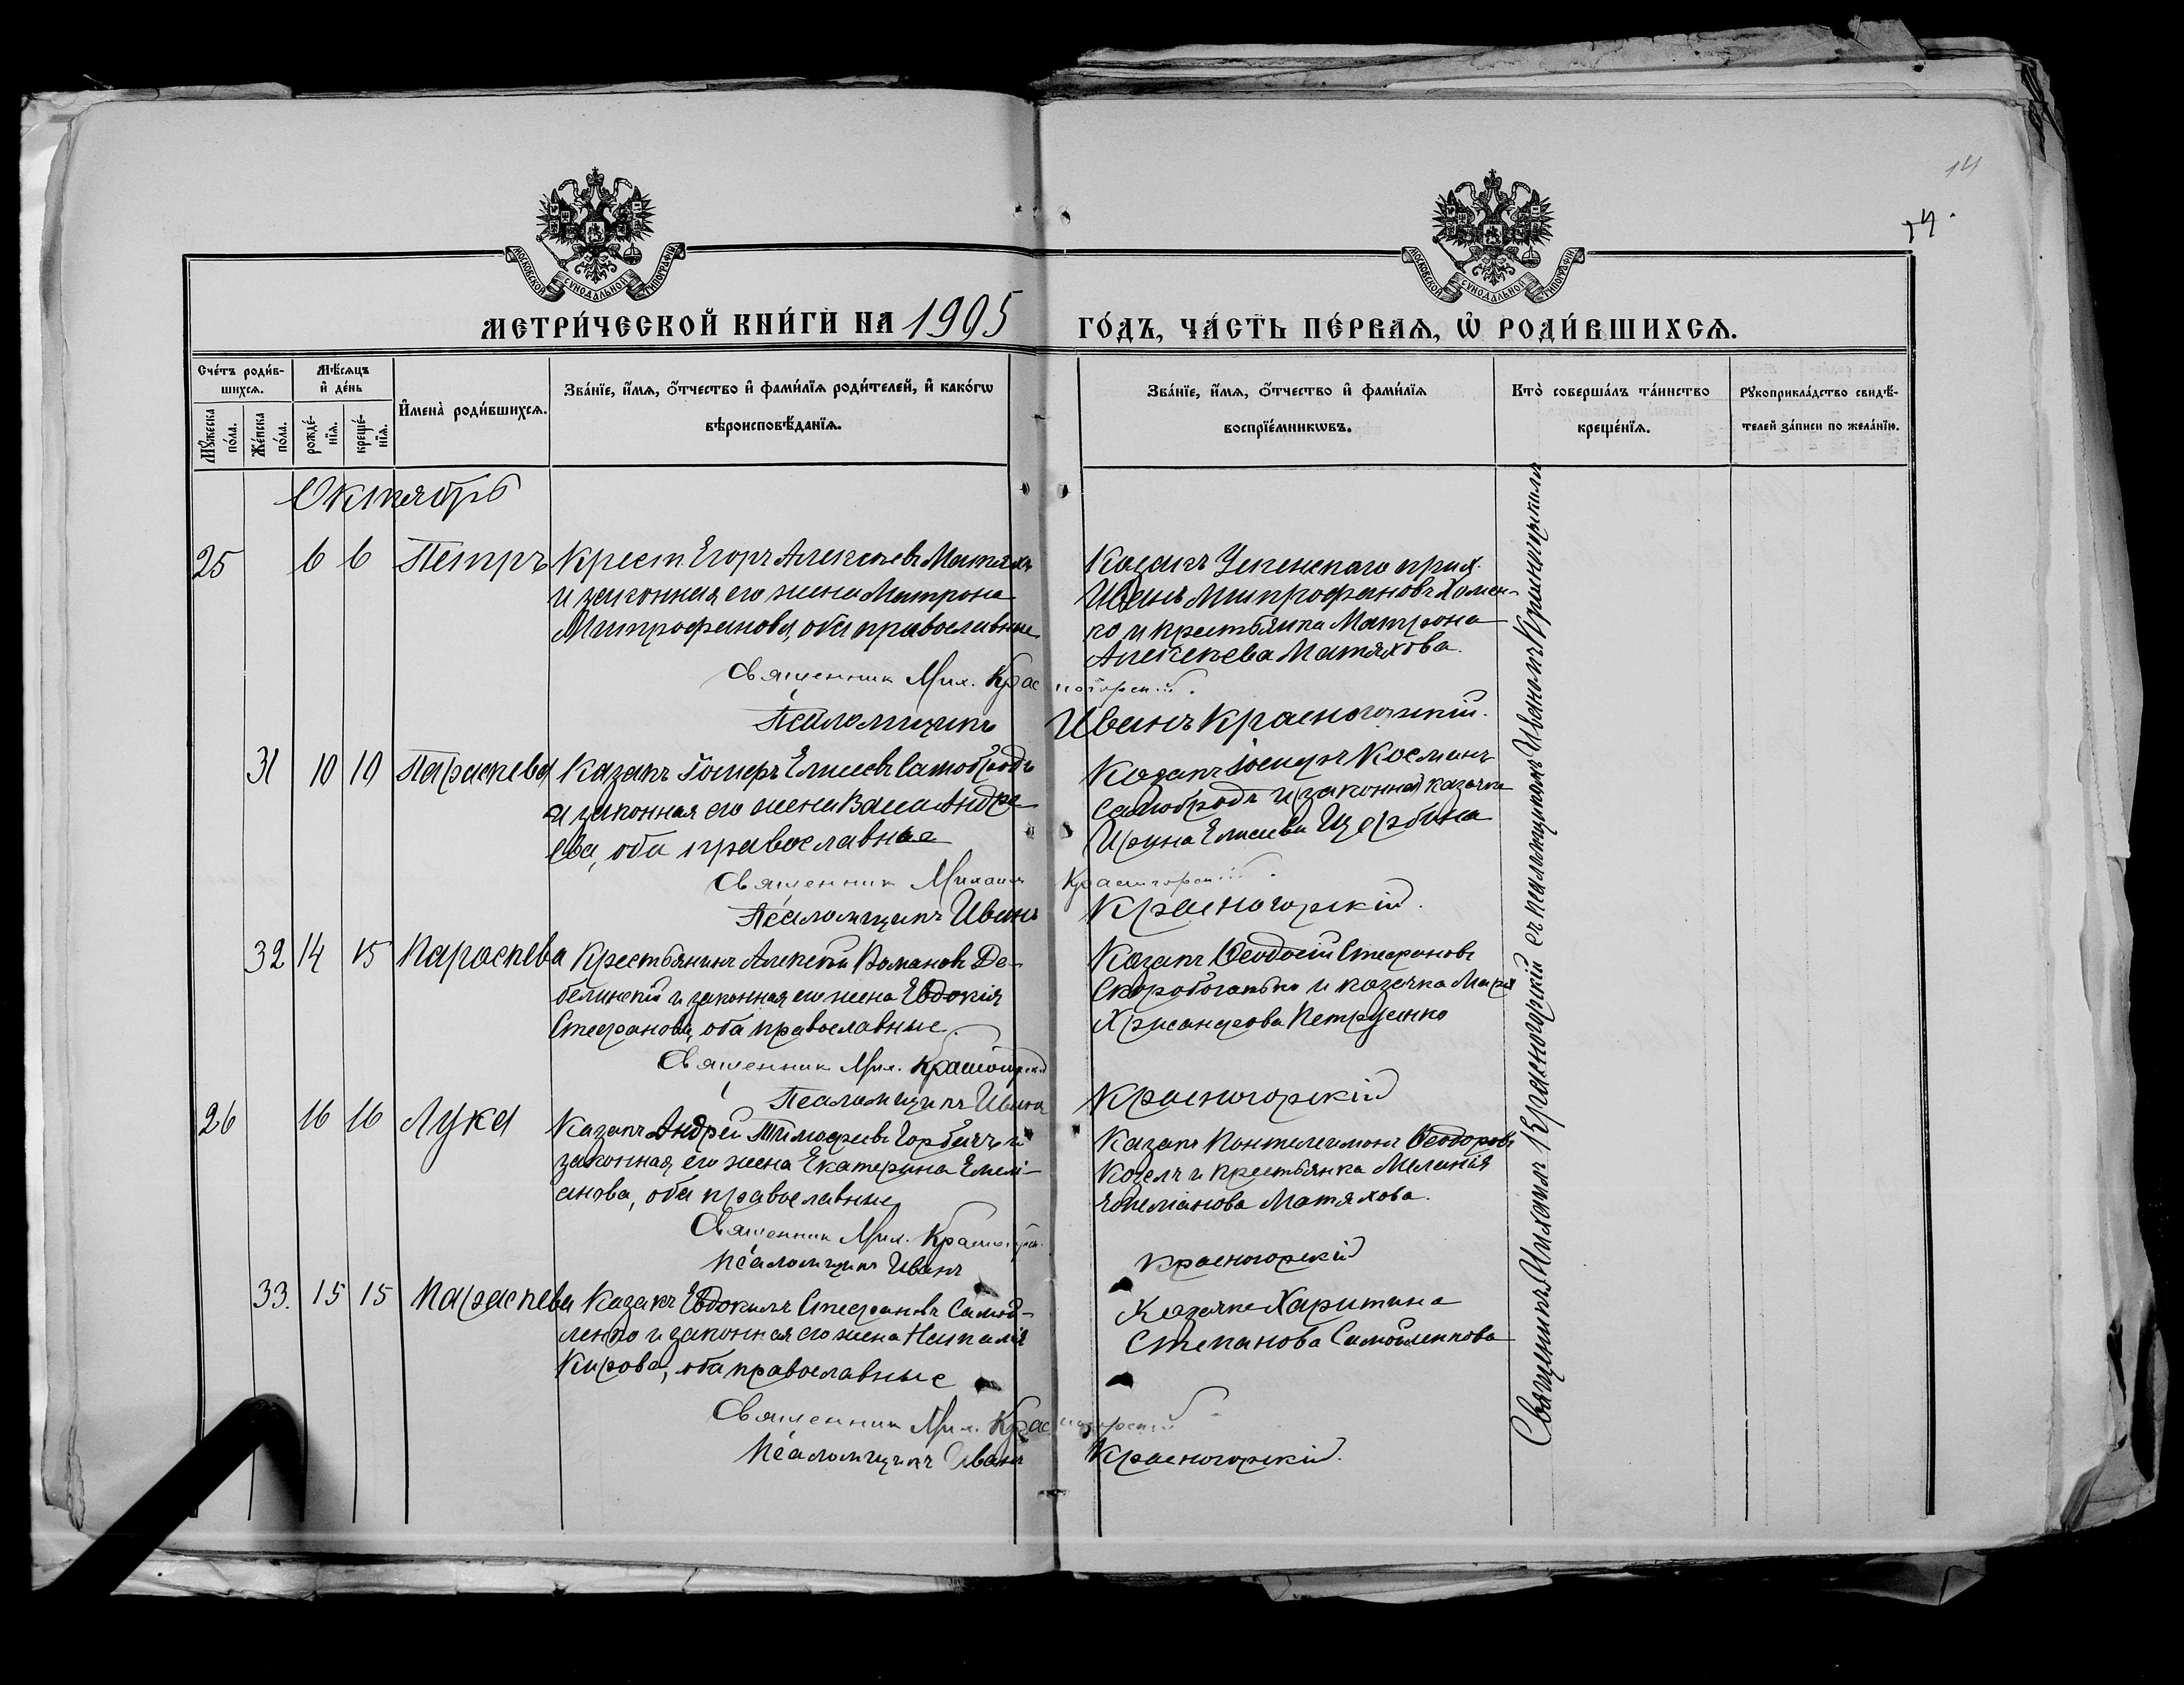 14
14.
МОСКОВСКОЙ СѴНОДАЛЬНОЙ ТИПОГРАФІИ
МОСКОВСКОЙ СѴНОДАЛЬНОЙ ТИПОГРАФІИ
МЕТРИ́ЧЕСКОЙ КНИ́ГИ НА 1905 ГО́ДЪ, ЧА́СТЬ ПЕ́РВАѦ, Ѡ҆ РОДИ́ВШИХСѦ.
Сче́тъ роди́в-
шихсѧ.
Мꙋ́жеска
по́ла.
Же́нска
по́ла.
Мѣ́сѧцъ
и҆ де́нь
рожде́-
нїѧ.
креще́-
нїѧ.
И҆мена̀ роди́вшихсѧ.
Зва́нїе, и҆́мѧ, ѻ҆́тчество и҆ фами́лїѧ роди́телей, и҆ како́гѡ
вѣроисповѣ́данїѧ.
Зва́нїе, и҆́мѧ, ѻ҆́тчество и҆ фами́лїѧ
воспрїе́мникѡвъ.
Кто̀ соверша́лъ та́инство
креще́нїѧ.
Рꙋкоприкла́дство свидѣ́-
телей за́писи по жела́нїю.
Октябрь
25 6 6 Петръ
Крест. Егоръ Алексѣевъ Матяхъ
и законная его жена Матрона
Митрофанова, оба православные
Козакъ Успенскаго прих.
Иванъ Митрофановъ Хомен-
ко и крестьянка Матрона
Алексѣева Матяхова.
Священник Мих. Красногорскій.
Псаломщикъ Иванъ Красногорскій.
31 10 10 Параскева
Казакъ Іосифъ Елисеевъ Самобродъ
и законная его жена Васса Андре
ева, оба православные
Козакъ Іосифъ Косминъ
Самобродъ и законная казачка
Ирина Елисеева Щербина
Священник Михаил Красногорскій.
Псаломщикъ Иванъ Красногорскій.
32 14 15 Параскева
Крестьянинъ Алексѣй Романовъ Де-
белинскій и законная его жена Евдокія
Стефанова, оба православные.
Казакъ Ѳеодосій Стефановъ
Скоробогатько и казачка Марія
Хрисанфова Петрусенко
Священник Мих. Красногорскій
Псаломщикъ Иванъ Красногорскій
26 16 16 Лука
Казакъ Андрей Тимофеевъ Горбачъ и
законная его жена Екатерина Емелі-
анова, оба православные
Казакъ Пантелеимонъ Ѳеодоровъ
Козелъ и крестьянка Меланія
Матяхова.
Священник Мих. Красногорскій.
Псаломщикъ Иванъ Красногорскій
33. 15 15 Параскева
Казакъ Евдокимъ Стефановъ Самой-
ленко и законная его жена Наталія
Кирова, оба православные
Казачка Харитина
Степанова Самойленкова
Священник Мих. Красногорскій
Псаломщикъ Иванъ Красногорскій.
Священникъ Михаилъ Красногорскій съ псаломщикомъ Иваномъ Красногорскимъ